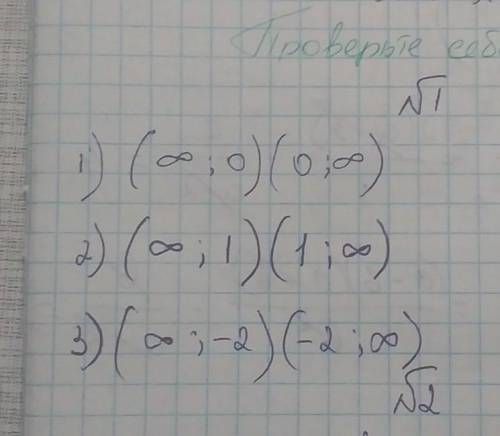 Проверьте себ
√1
1) (∞ ; 0) (0 ; ∞)
2) (∞ ; 1) (1 ; ∞)
3) (∞ ; -2) (-2 ; ∞)
√2